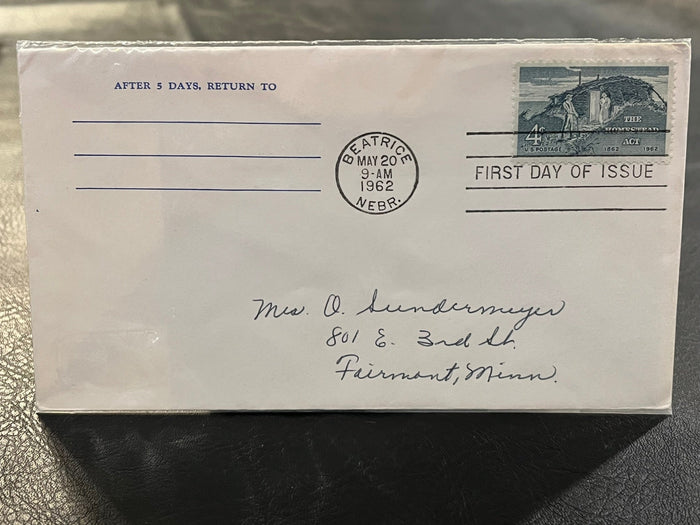 AFTER 5 DAYS, RETURN TO
BEATRICE
MAY 20
9-AM
1962
NEBR.
4¢
THE
HOMESTEAD
ACT
U.S. POSTAGE
1862 1962
FIRST DAY OF ISSUE
Mrs. O. Sundermeyer
801 E. 3rd St.
Fairmont, Minn.